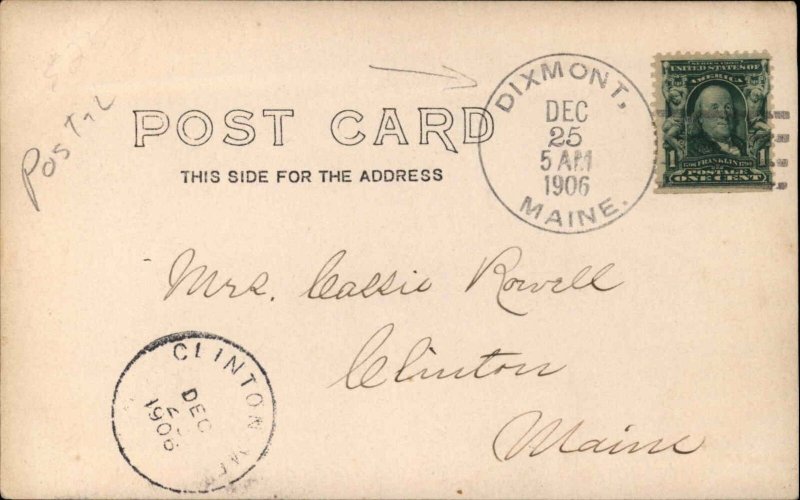 Postal
POST CARD
THIS SIDE FOR THE ADDRESS
DIXMONT,
DEC
25
5 AM
1906
MAINE.
SERIES 1902
UNITED STATES OF
AMERICA
1 FRANKLIN 1
POSTAGE
ONE CENT
Mrs. Cassie Rowell
Clinton
Maine
CLINTON
DEC
1906